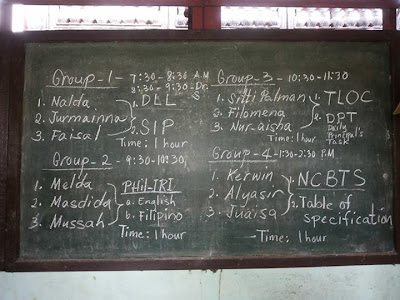 Group-1- 7:30-8:30 A.M
8:30-9:30-Dr.
S
1. Nalda
2. Jurmainna
3. Faisal
1. DLL
2. SIP
Time: 1 hour
Group-2 - 9:30-10:30
1. Melda
2. Masdida
3. Mussah
Phil-IRI
a. English
b. Filipino
Time: 1 hour
Group-3 - 10:30-11:30
1. Sitti Palman
2. Filomena
3. Nur-aisha
1. TLOC
2. DPT
Daily
Principal's
Task
Time: 1 hour
Group-4-1:30-2:30 P.M
1. Kerwin
2. Alyasir
3. Juaisa
1. NCBTS
2. Table of
specification
Time: 1 hour